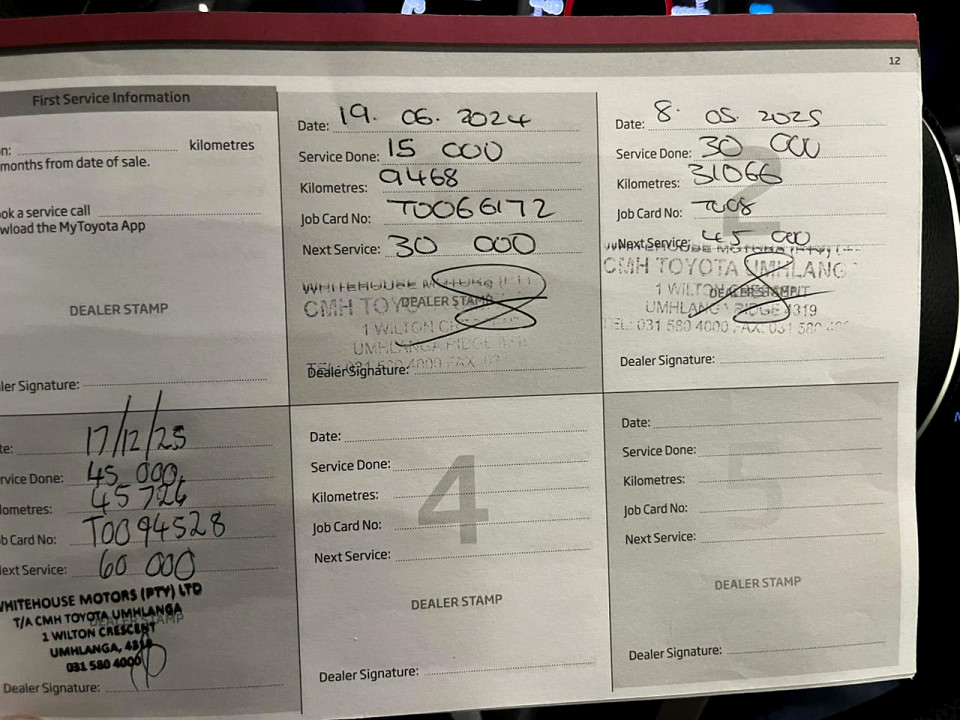 12
First Service Information
n: kilometres
months from date of sale.
ook a service call
wload the MyToyota App
DEALER STAMP
ler Signature:
Date: 19. 06. 2024
Service Done: 15 000
Kilometres: 9468
Job Card No: T0066172
Next Service: 30 000
WHITEHOUSE MOTORS
CMH TOY
DEALER STAMP
1 WILTON
UMHLANGA RIDGE
TEL: 031 580 4000 FAX
Dealer Signature:
2
Date: 8. 05. 2025
Service Done: 30 000
Kilometres: 31066
Job Card No:
Next Service: 45 000
WHITEHOUSE MOTORS (PTY)
CMH TOYOTA UMHLANG
1 WILTON CRESCENT
DEALER STAMP
UMHLANGA RIDGE 4319
TEL: 031 580 4000 FAX: 031 580
Dealer Signature:
te: 17/12/25
rvice Done: 45 000
lometres: 45726
b Card No: T0094528
Next Service: 60 000
WHITEHOUSE MOTORS (PTY) LTD
T/A CMH TOYOTA UMHLANGA
DEALER STAMP
1 WILTON CRESCENT
UMHLANGA, 4319
031 580 4000
Dealer Signature:
4
Date:
Service Done:
Kilometres:
Job Card No:
Next Service:
DEALER STAMP
Dealer Signature:
5
Date:
Service Done:
Kilometres:
Job Card No:
Next Service:
DEALER STAMP
Dealer Signature: